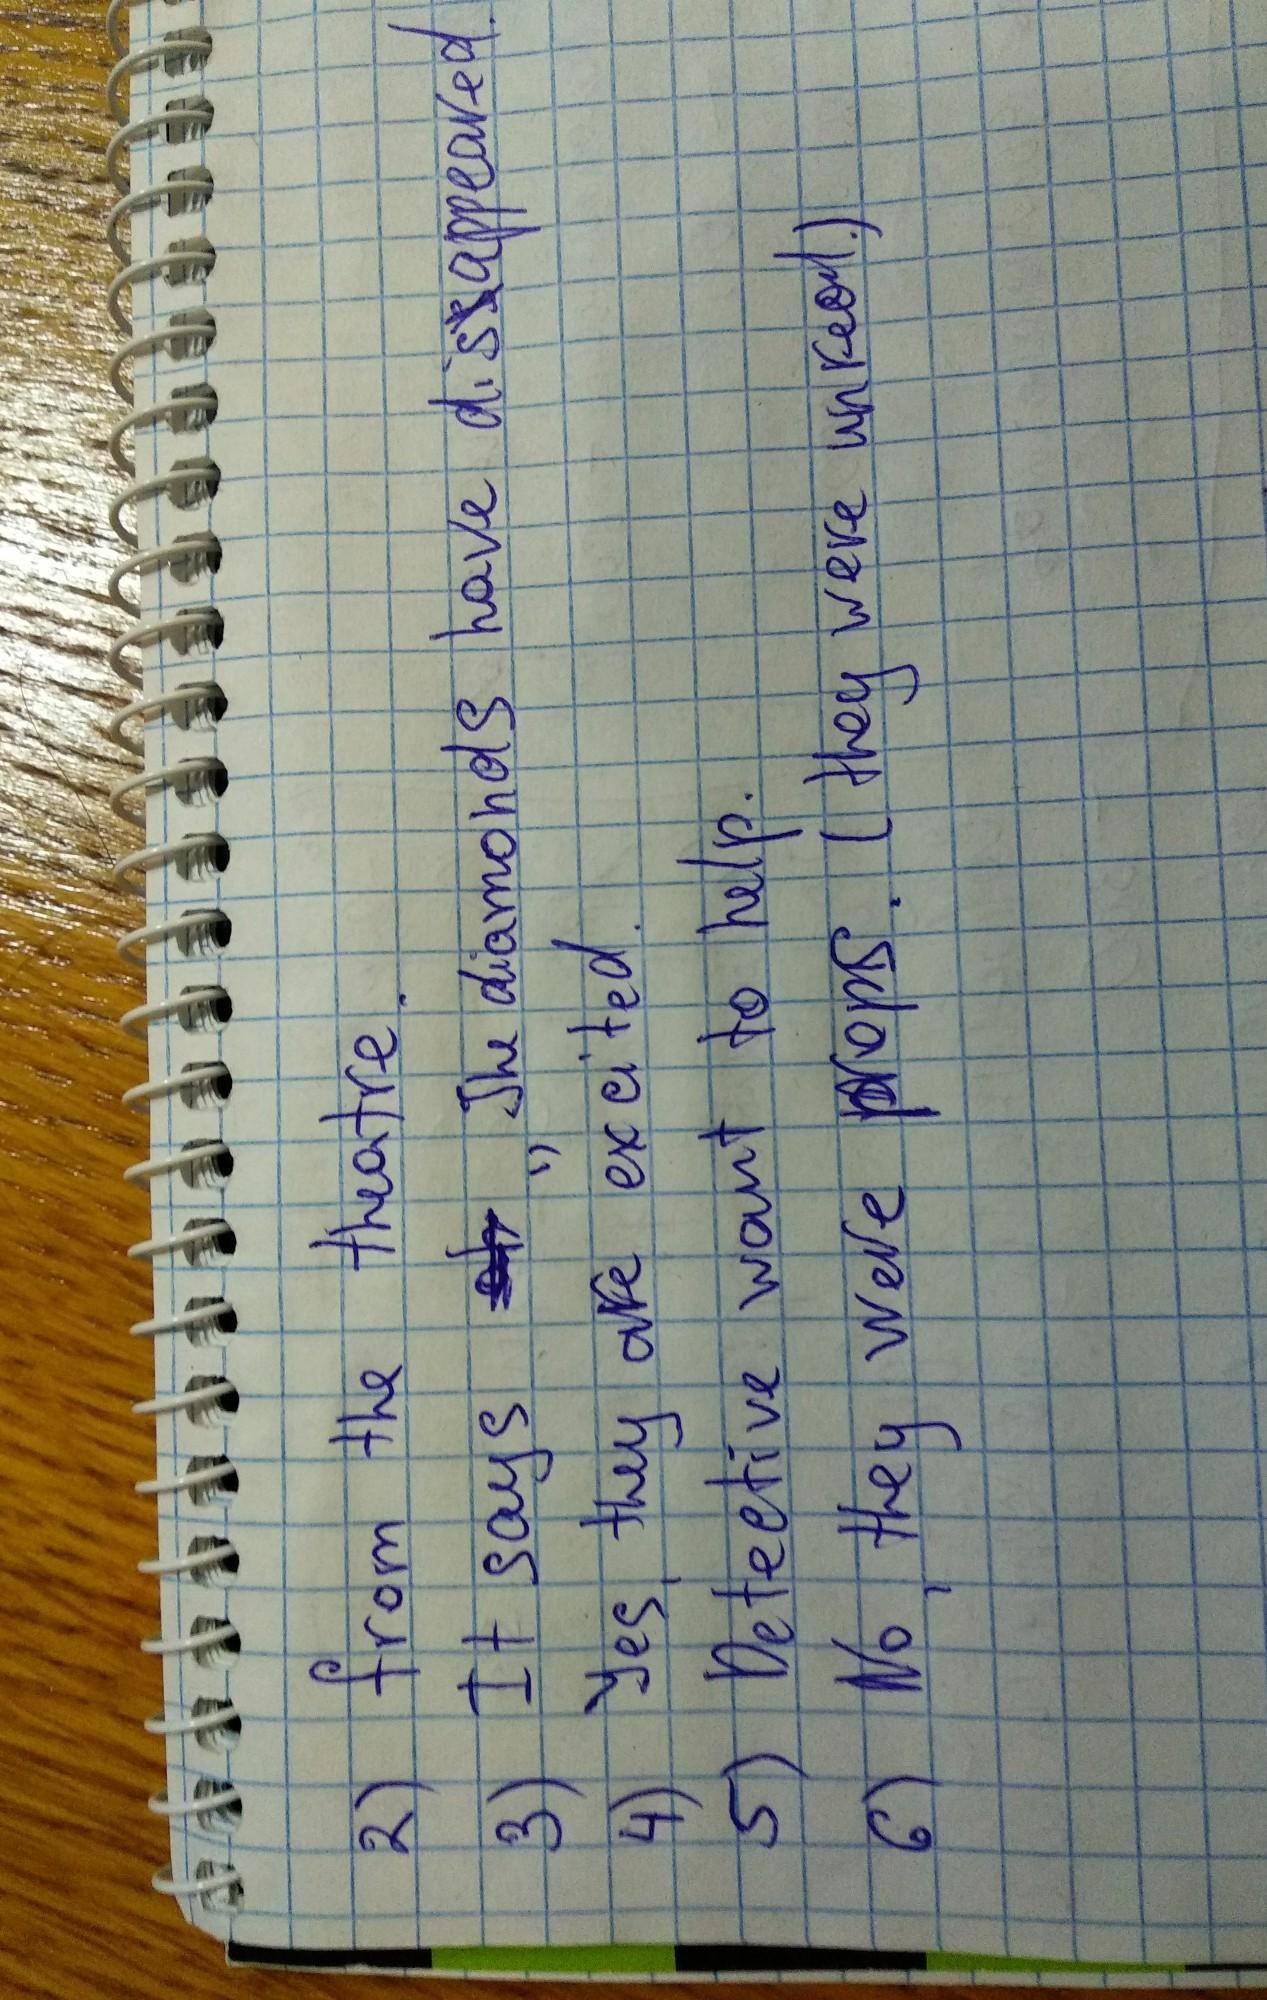 2) from the theatre.
3) It says „The diamonds have disappeared.
4) Yes, they are excited.
5) Detective want to help.
6) No, they were props. (they were unreal.)